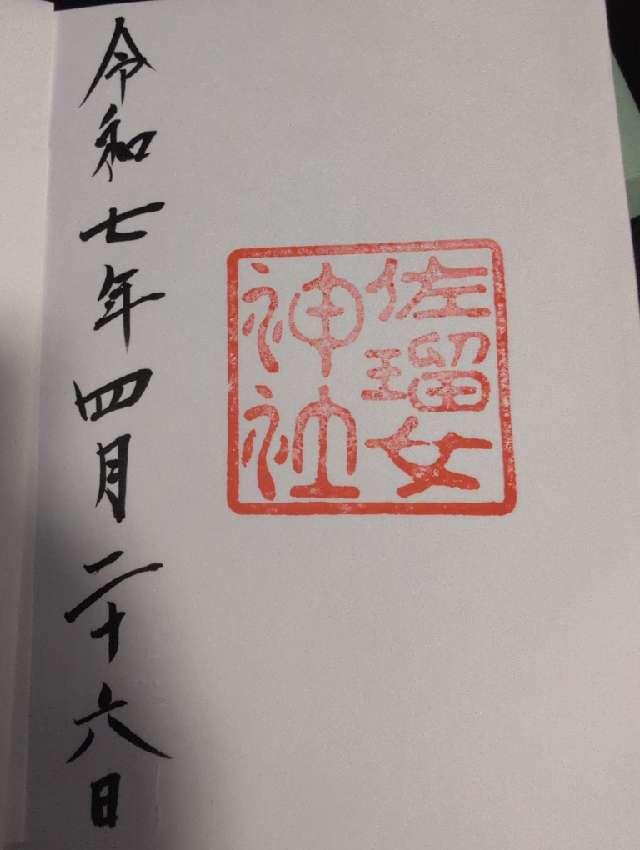 佐瑠女
神社
令和七年四月二十六日